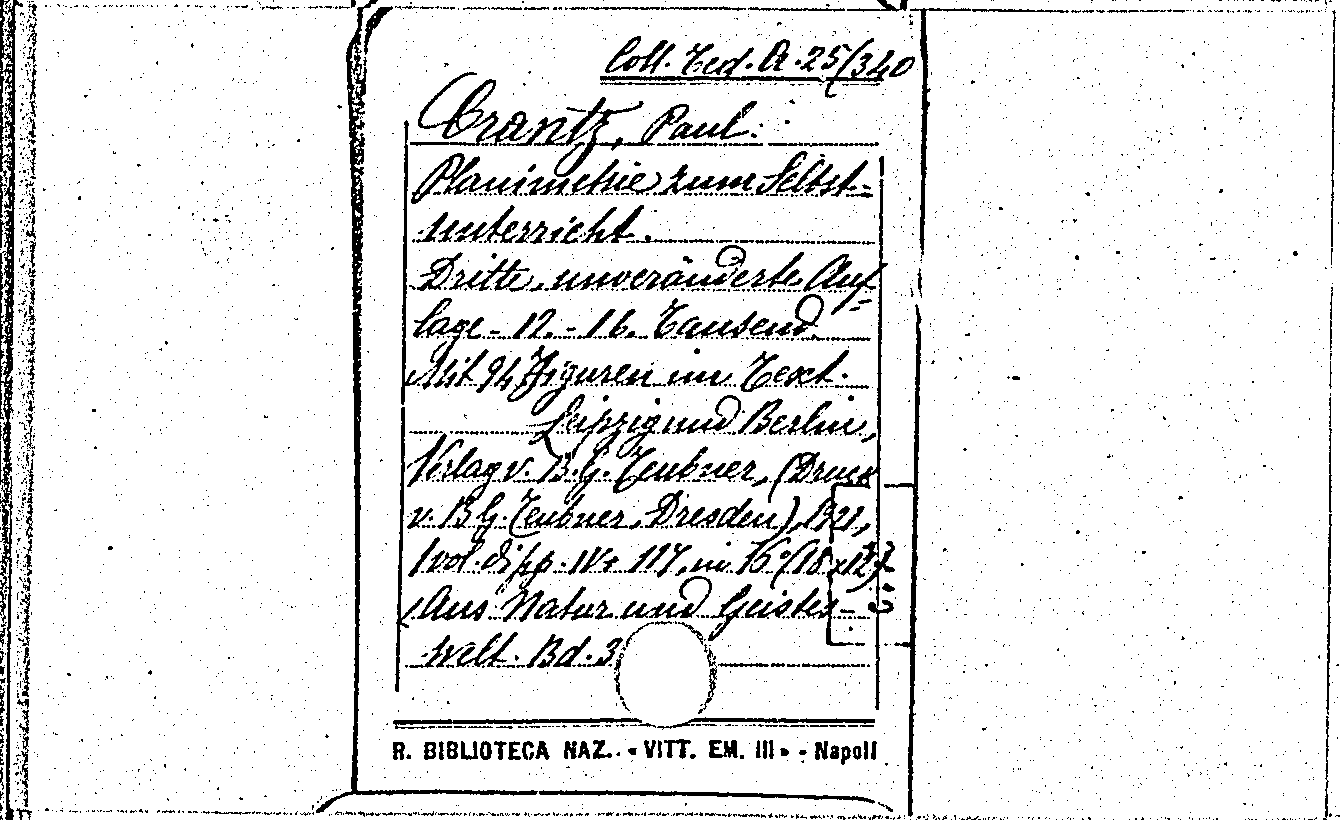 Coll. Ted. A. 25/340
Crantz, Paul.
Planimetrie zum Selbst-
unterricht.
Dritte, unveränderte Auf-
lage - 12. - 16. Tausend.
Mit 94 Figuren im Text.
Leipzig und Berlin,
Verlag v. B. G. Teubner, (Druck
v. B. G. Teubner, Dresden), 1921,
1 vol. di pp. IV + 117, in 16° (18 x
(Aus Natur und Geistes-
welt. Bd. 3
R. BIBLIOTECA NAZ. - «VITT. EM. III» - Napoli